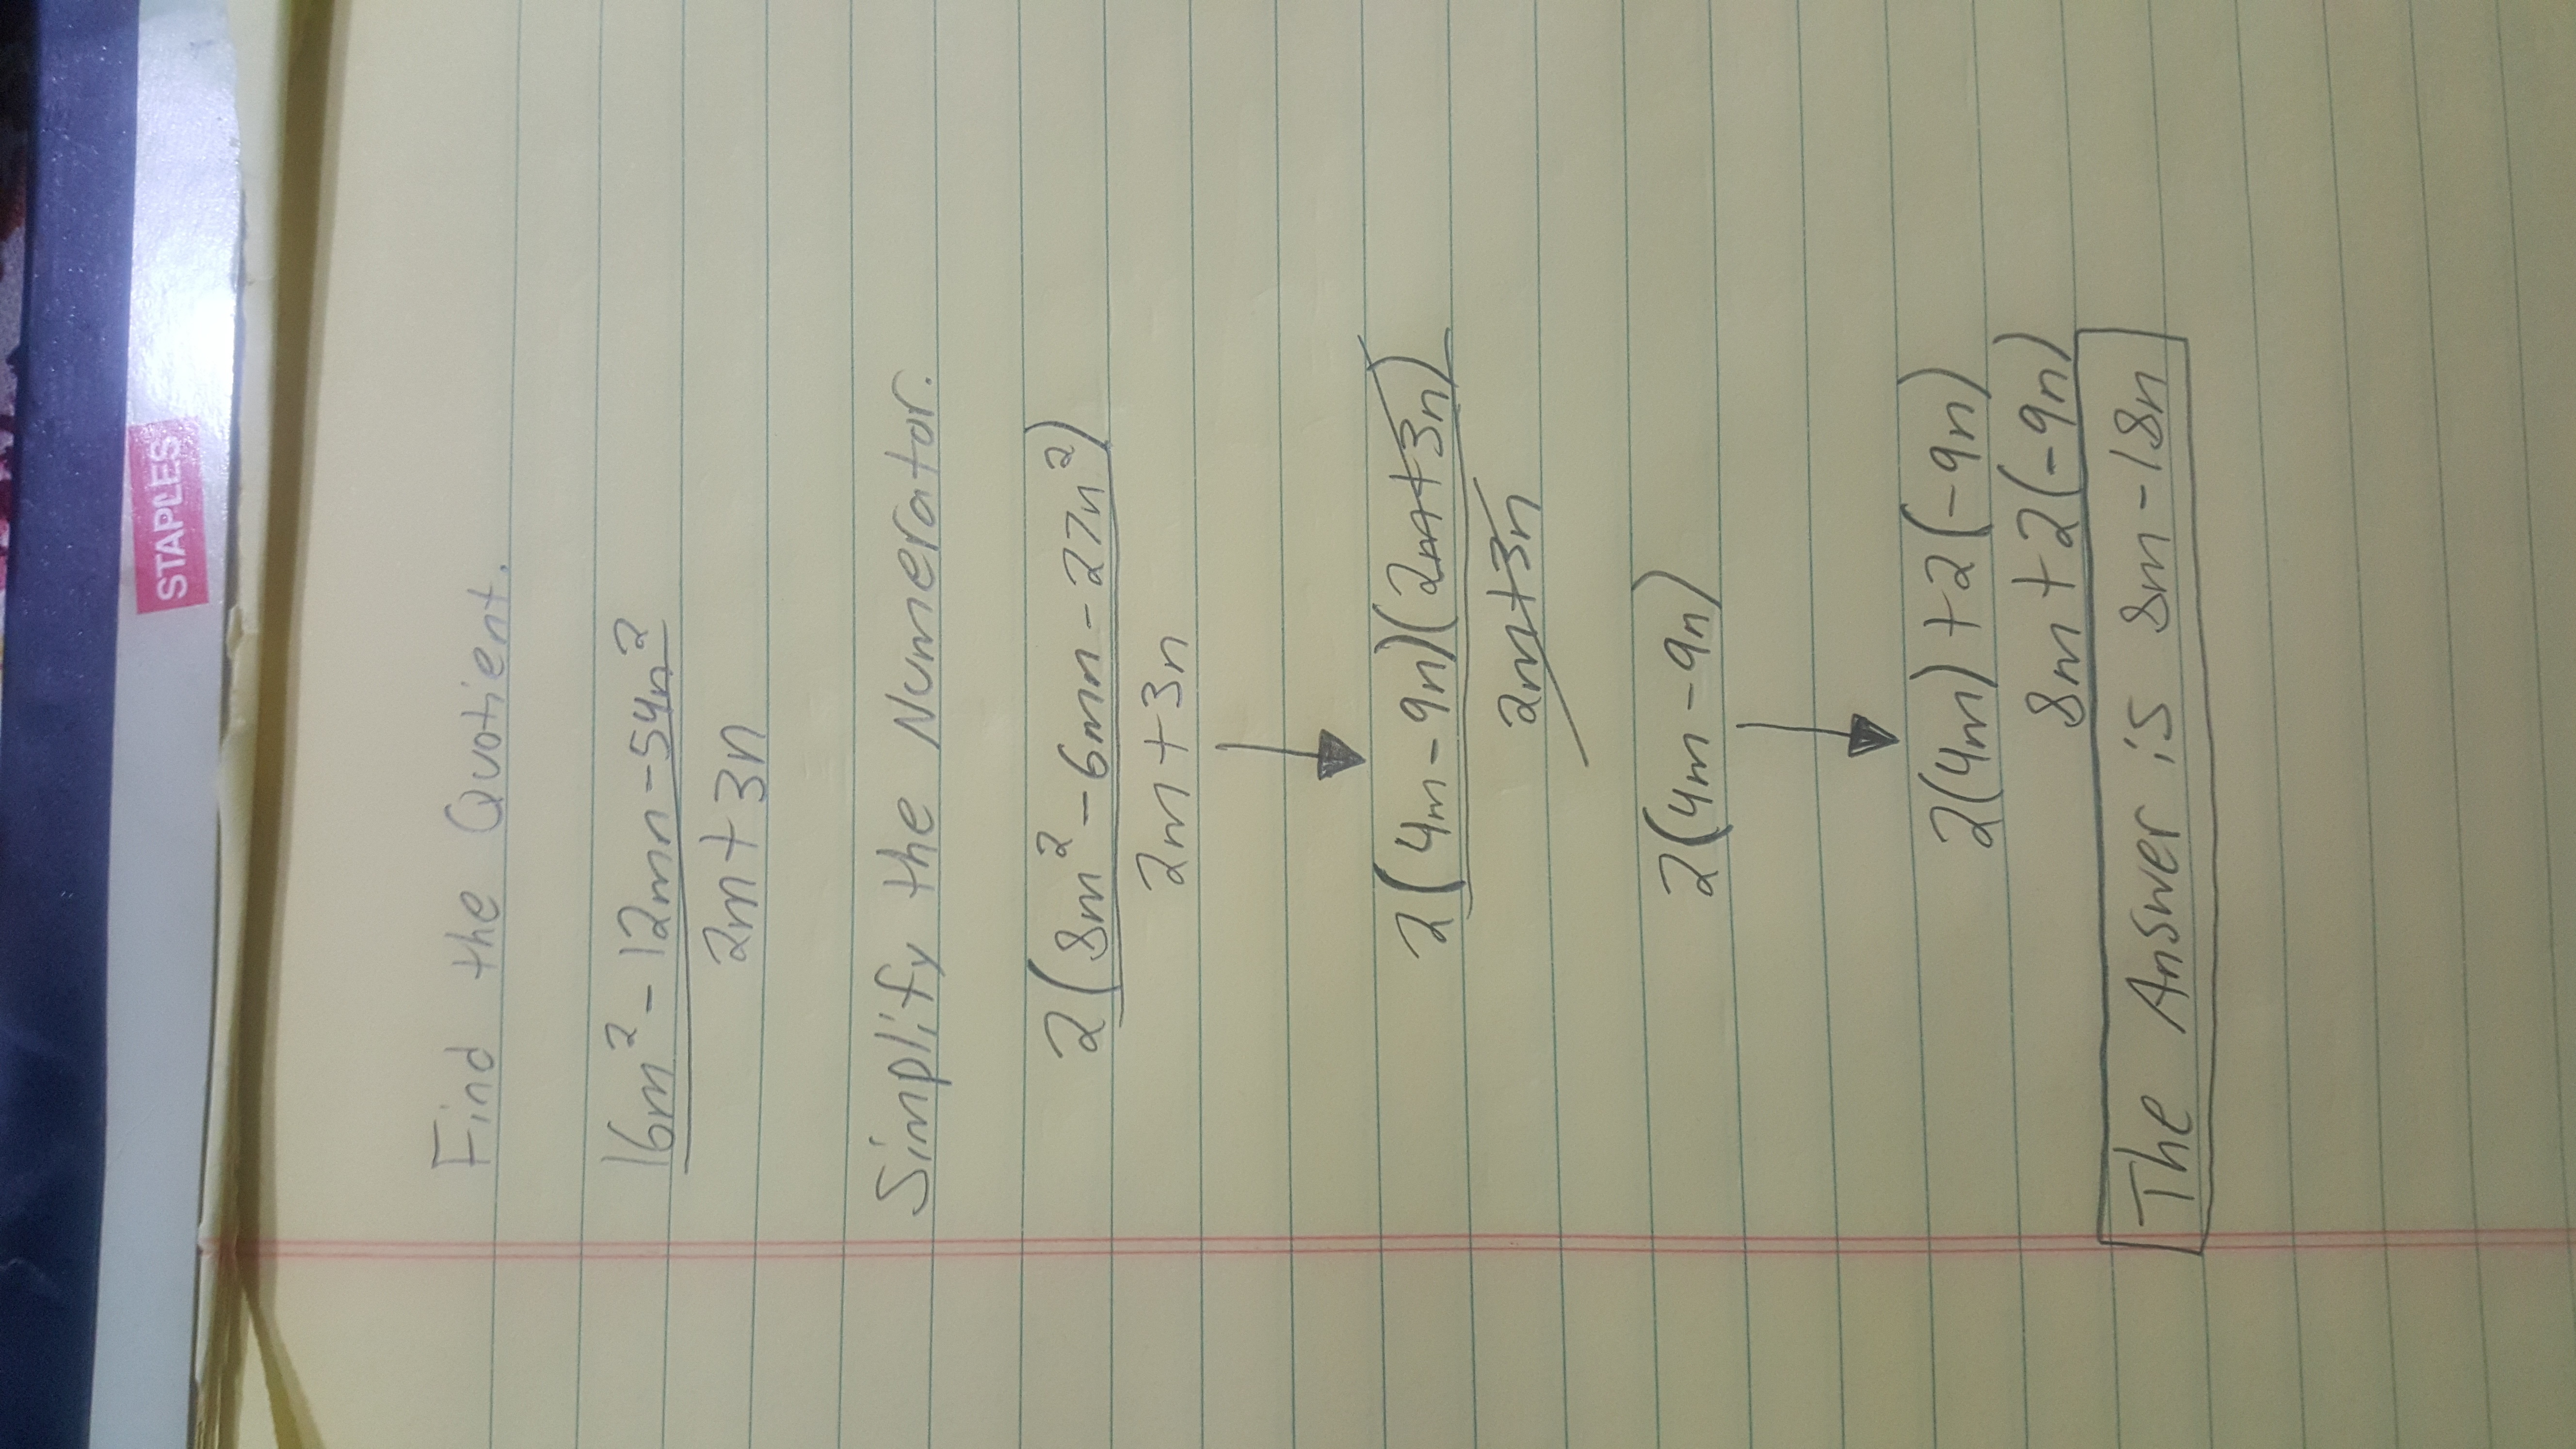 STAPLES
Find the Quotient.
16m² - 12mn - 54n²
2m + 3n
Simplify the Numerator.
2(8m² - 6mn - 27n²)
2m + 3n
2(4m - 9n)(2m + 3n)
2m + 3n
2(4m - 9n)
2(4m) + 2(-9n)
8m + 2(-9n)
The Answer is 8m - 18n